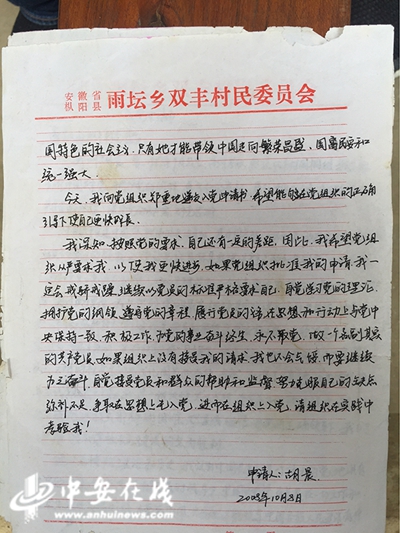 安徽省
枞阳县
雨坛乡双丰村民委员会
国特色的社会主义,只有她才能带领中国走向繁荣昌盛、国富民安和
统一强大。
今天,我向党组织郑重地递交入党申请书,希望能够在党组织的正确
引导下使自己更快成长。
我深知,按照党的要求,自己还有一定的差距,因此,我希望党组
织从严要求我,以使我更快进步,如果党组织批准我的申请,我一
定会戒骄戒躁,继续以党员的标准严格要求自己,自觉学习党的理论,
拥护党的纲领,遵守党的章程,履行党员的义务,在思想和行动上与党中
央保持一致,积极工作,为党的事业奋斗终生,永不叛党,做一个名副其实
的共产党员,如果组织上没有接受我的请求,我也不会气馁,而要继续
为之奋斗,自觉接受党员和群众的帮助和监督,努力克服自己的缺点
弥补不足,争取在思想上先入党,进而在组织上入党,请组织在实践中
考验我!
申请人:胡晨
2008年10月8日
中安在线
www.anhuinews.com